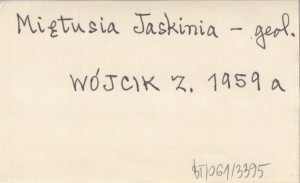 Miętusia Jaskinia – geol.
WÓJCIK Z. 1959 a
BT/061/3395